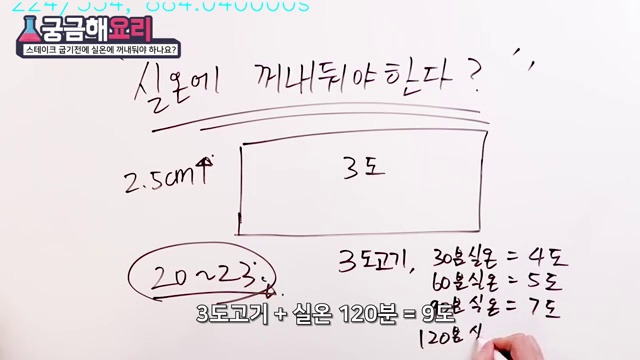 224/334, 884.040000s
궁금해요리
스테이크 굽기전에 실온에 꺼내둬야 하나요?
"실온에 꺼내둬야한다?"
2.5cm↑
3도
20~23도
3도고기, 30분실온 = 4도
60분실온 = 5도
분실온 = 7도
120분
3도고기 + 실온 120분 = 9도